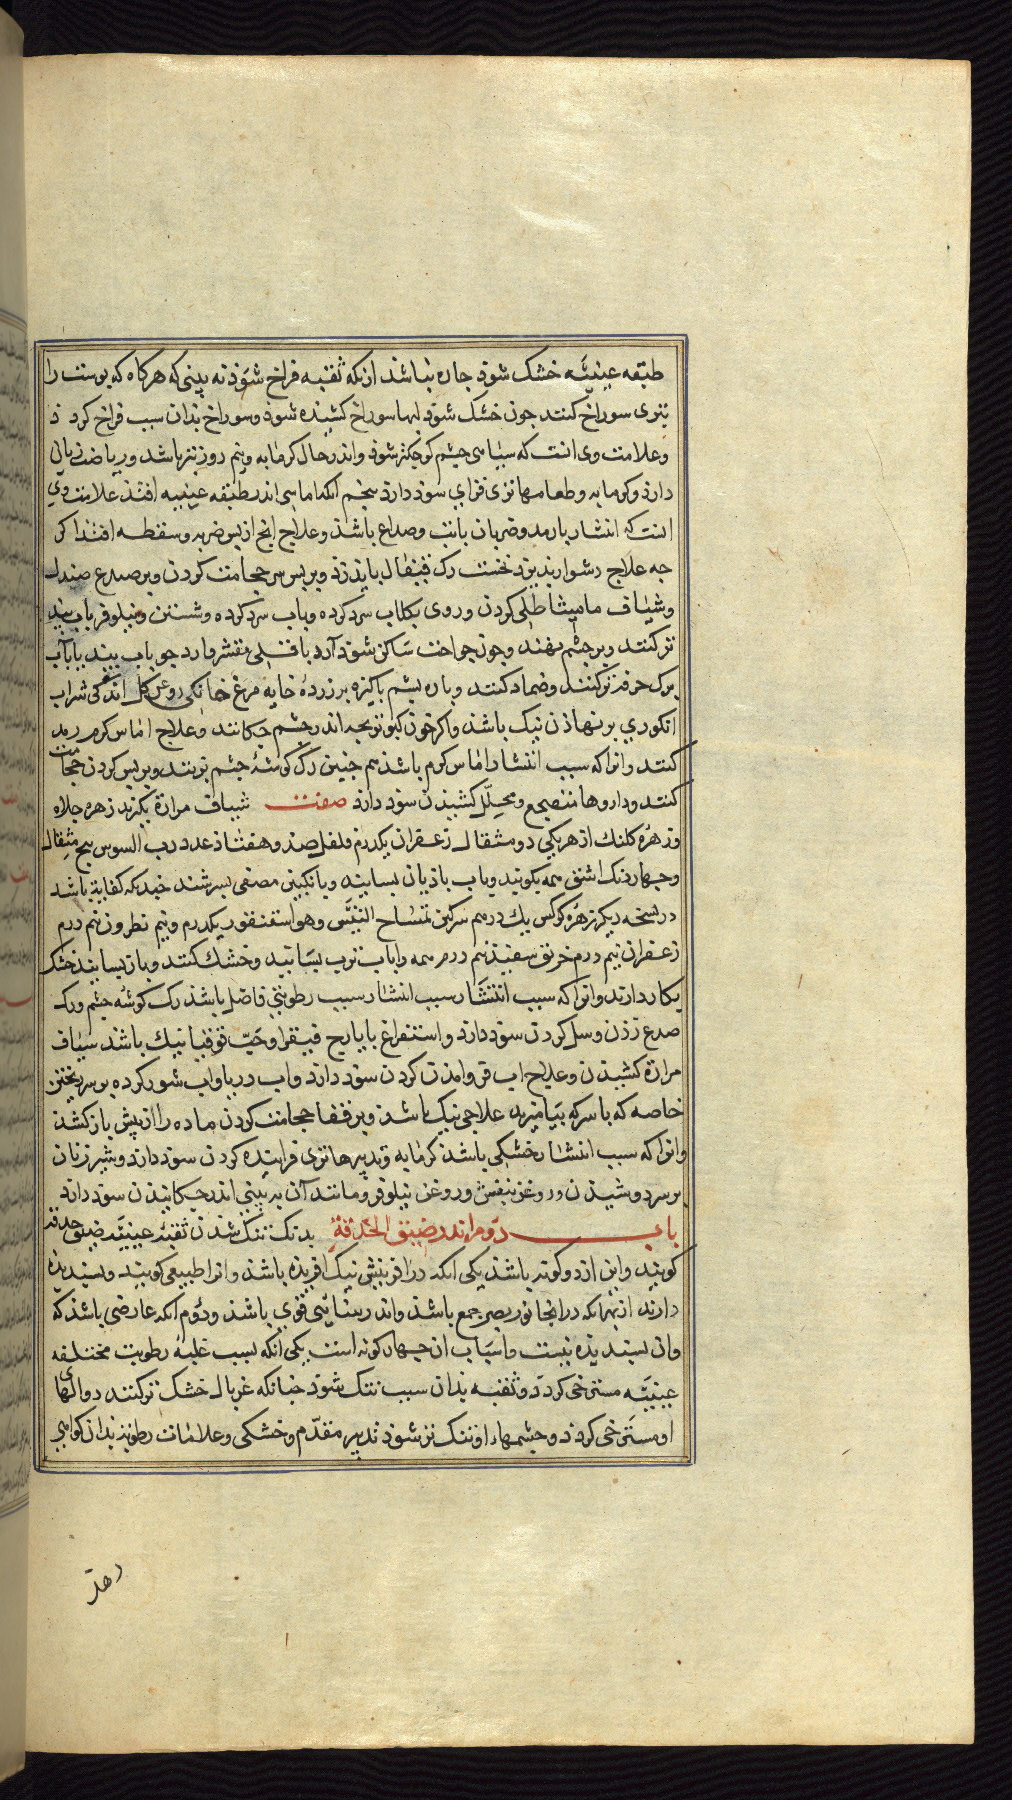 طبقه عینیّه خشک شوذ جاره نباشذ ازنکه ثقبه فراخ شوَذ نه بینی که هرکاه که بوست را
بتری سوراخ کنند جون خشک شوَذ لبها سوراخ کشیذه شوذ وسوراخ بذان سبب فراخ کرد ذ
وعلامت وی انست که سیاهی جشم کوجکتر شوذ واندر حال کرمابه ونیم روز بتر باشد وریاضت زیان
دارذ وکرمابه وطعامها تری فزای سوذ دارذ بنجم انکه اماسی اندر طبقه عینیه افتذ علامت وی
انست که انتشار با رمد وضربان بانت وصداع باشذ وعلاج انج از بس ضربه وسقطه افتذ اکر
جه علاج دشوار بذیرذ نخست رک قیفال بایذ زذ وبر بس سر حجامت کردن وبر صدع صندل
وشیاف مامیثا طلی کردن وروی بکلاب سرد کرده وباب سرد کرده وشستن ونیلوفر باب بید
تر کنند وبر جشم نهند وجون جراحت ساکن شوذ آرد باقلی مقشر وارد جو باب بید یا باب
برک خرفه تر کنند وضماد کنند وباره بشم باکیزه بر زردهٔ خایه مرغ خانکی روغن کل اندکی شراب
انکوری بر نهاذن نیک باشذ واکر خون کبوتر بجه اندر جشم جکانند وعلاج اماس کرم رمد
کنند وانرا که سبب انتشار اماس کرم باشذ هم جنین رک کوشهٔ جشم بزنند وبر بس کردن حجامت
کنند وداروها منضج ومحلّل کشیذن سوذ دارذ صفت شیاف مرارة بکیرند زهره جلاه
وزهرهٔ کلنک از هر یکی دو مثقال زعفران یکدرم فلفل صذ وهفتاذ عدد رب السوس بنج مثقال
وجهار دنک اشق همه بکوبند وباب باذیان بسایند وبانکبین مصفی بسرشند جندانکه کفایة باشد
در نسخه دیکر زهرهٔ کرکس یک درم سرکین تمساح النیتس وهو اسقنقور یکدرم ونیم نطرون نیم درم
زعفران نیم درم خربق سفید نیم درم همه را باب ترب بسایند وخشک کنند وباز بسایند خشک
بکار دارند وانرا که سبب انتشار سبب رطوبتی فاضل باشذ رک کوشه جشم ورک
صدع زذن وسل کردن سوذ دارذ واستفراغ بایارج فیقرا وحبّ قوقیا نیک باشذ شیاف
مرارة کشیذن وعلاج اب فروامذن کردن سوذ دارذ واب دریا واب شور کرده بر سر ریختن
خاصه که با سرکه بیامیزند علاجی نیک باشذ وبر قفا حجامت کردن ماده را از بیش باز کشذ
وانرا که سبب انتشار خشکی باشذ کرمابه وتدبیرها تری فزاینده کردن سوذ دارذ وشیر زنان
بر سر دوشیذن وروغن بنفش وروغن نیلوفر ومانند آن به بینی اندر جکانیذن سوذ دارذ
باب دوم اندر ضیق الحدقة بدنک تنک شذن ثقبهٔ عینیّه ضیق حدقه
کویند واین از دو کونه باشذ یکی انکه در افرینش نیک افریذه باشذ وانرا طبیعی کویند وبسندیذه
دارند از بهر انکه در انجا نور بصر جمع باشذ واندر بینایی قوی باشذ ودوم انکه عارضی باشذ که
وان بسندیذه نیست واسباب ان جهار کونه است یکی انکه بسبب غلبهٔ رطوبت مختلفه
عینیّه مسترخی کردَذ وثقبه بذان سبب تنک شوذ جنانکه غربال خشک تر کنند دوالهای
او مسترخی کردذ وجشمهاء او تنک تر شوذ تدبیر مقدّم وخشکی وعلامات رطوبت بذان کواهی
دهذ